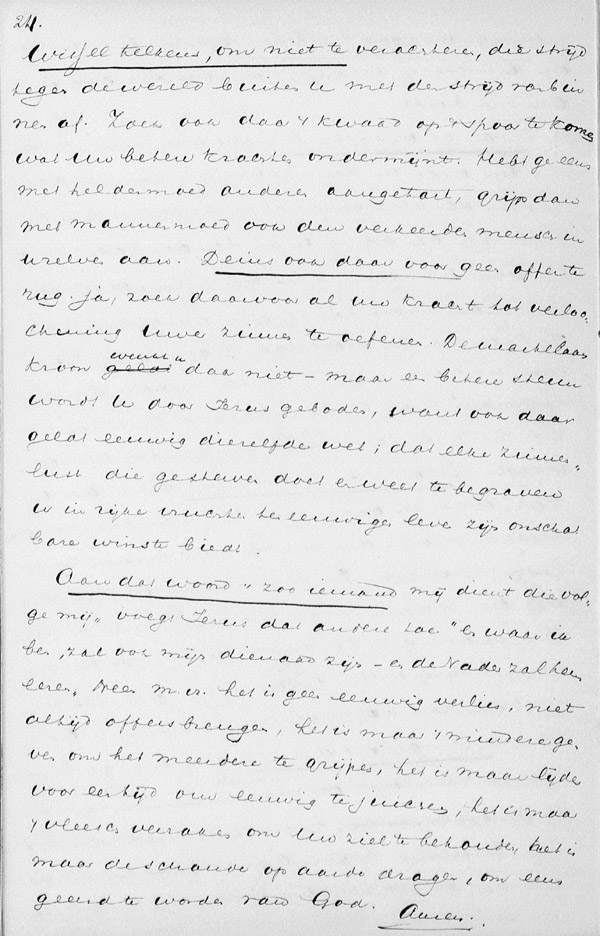 24.
Wissel telkens, om niet te verachteren, die strijd
tegen de wereld buiten u met den strijd van bin
nen af. Zoek ook daar 't kwaad op 't spoor te komen
wat uw betere krachten ondermijnt. Hebt ge eens
met heldenmoed anderen aangetast, grijp dan
met mannenmoed ook den verkeerden mensch in
uzelven aan. Deins ook daar voor geen offer te
rug. ja, zoek daarvoor al uw kracht tot verloo-
chening uwer zinnen te oefenen. De martelaars
kroon wenkt u daar niet – maar een betere
wordt u door Jezus geboden, want ook daar
geldt eeuwig diezelfde wet; dat elke zinne-
lust die ge sterven doet en weet te begraven
u in rijke vruchten het eeuwige leven zijn onschat
bare winste biedt.
Aan dat woord "zoo iemand mij dient die vol-
ge mij" voegt Jezus dat andere toe "en waar ik
ben, zal ook mijn dienaar zijn – en de Vader zal hem
eeren." Neen m. vr. het is geen eeuwig verlies, niet
altijd offers brengen, het is maar 't mindere ge
ven om het meerdere te grijpen, het is maar lijden
voor een tijd om eeuwig te juichen, het is maar
't vleesch verzaken om uw ziel te behouden, het is
maar de schande op aarde dragen, om eens
geeerd te worden van God. Amen.